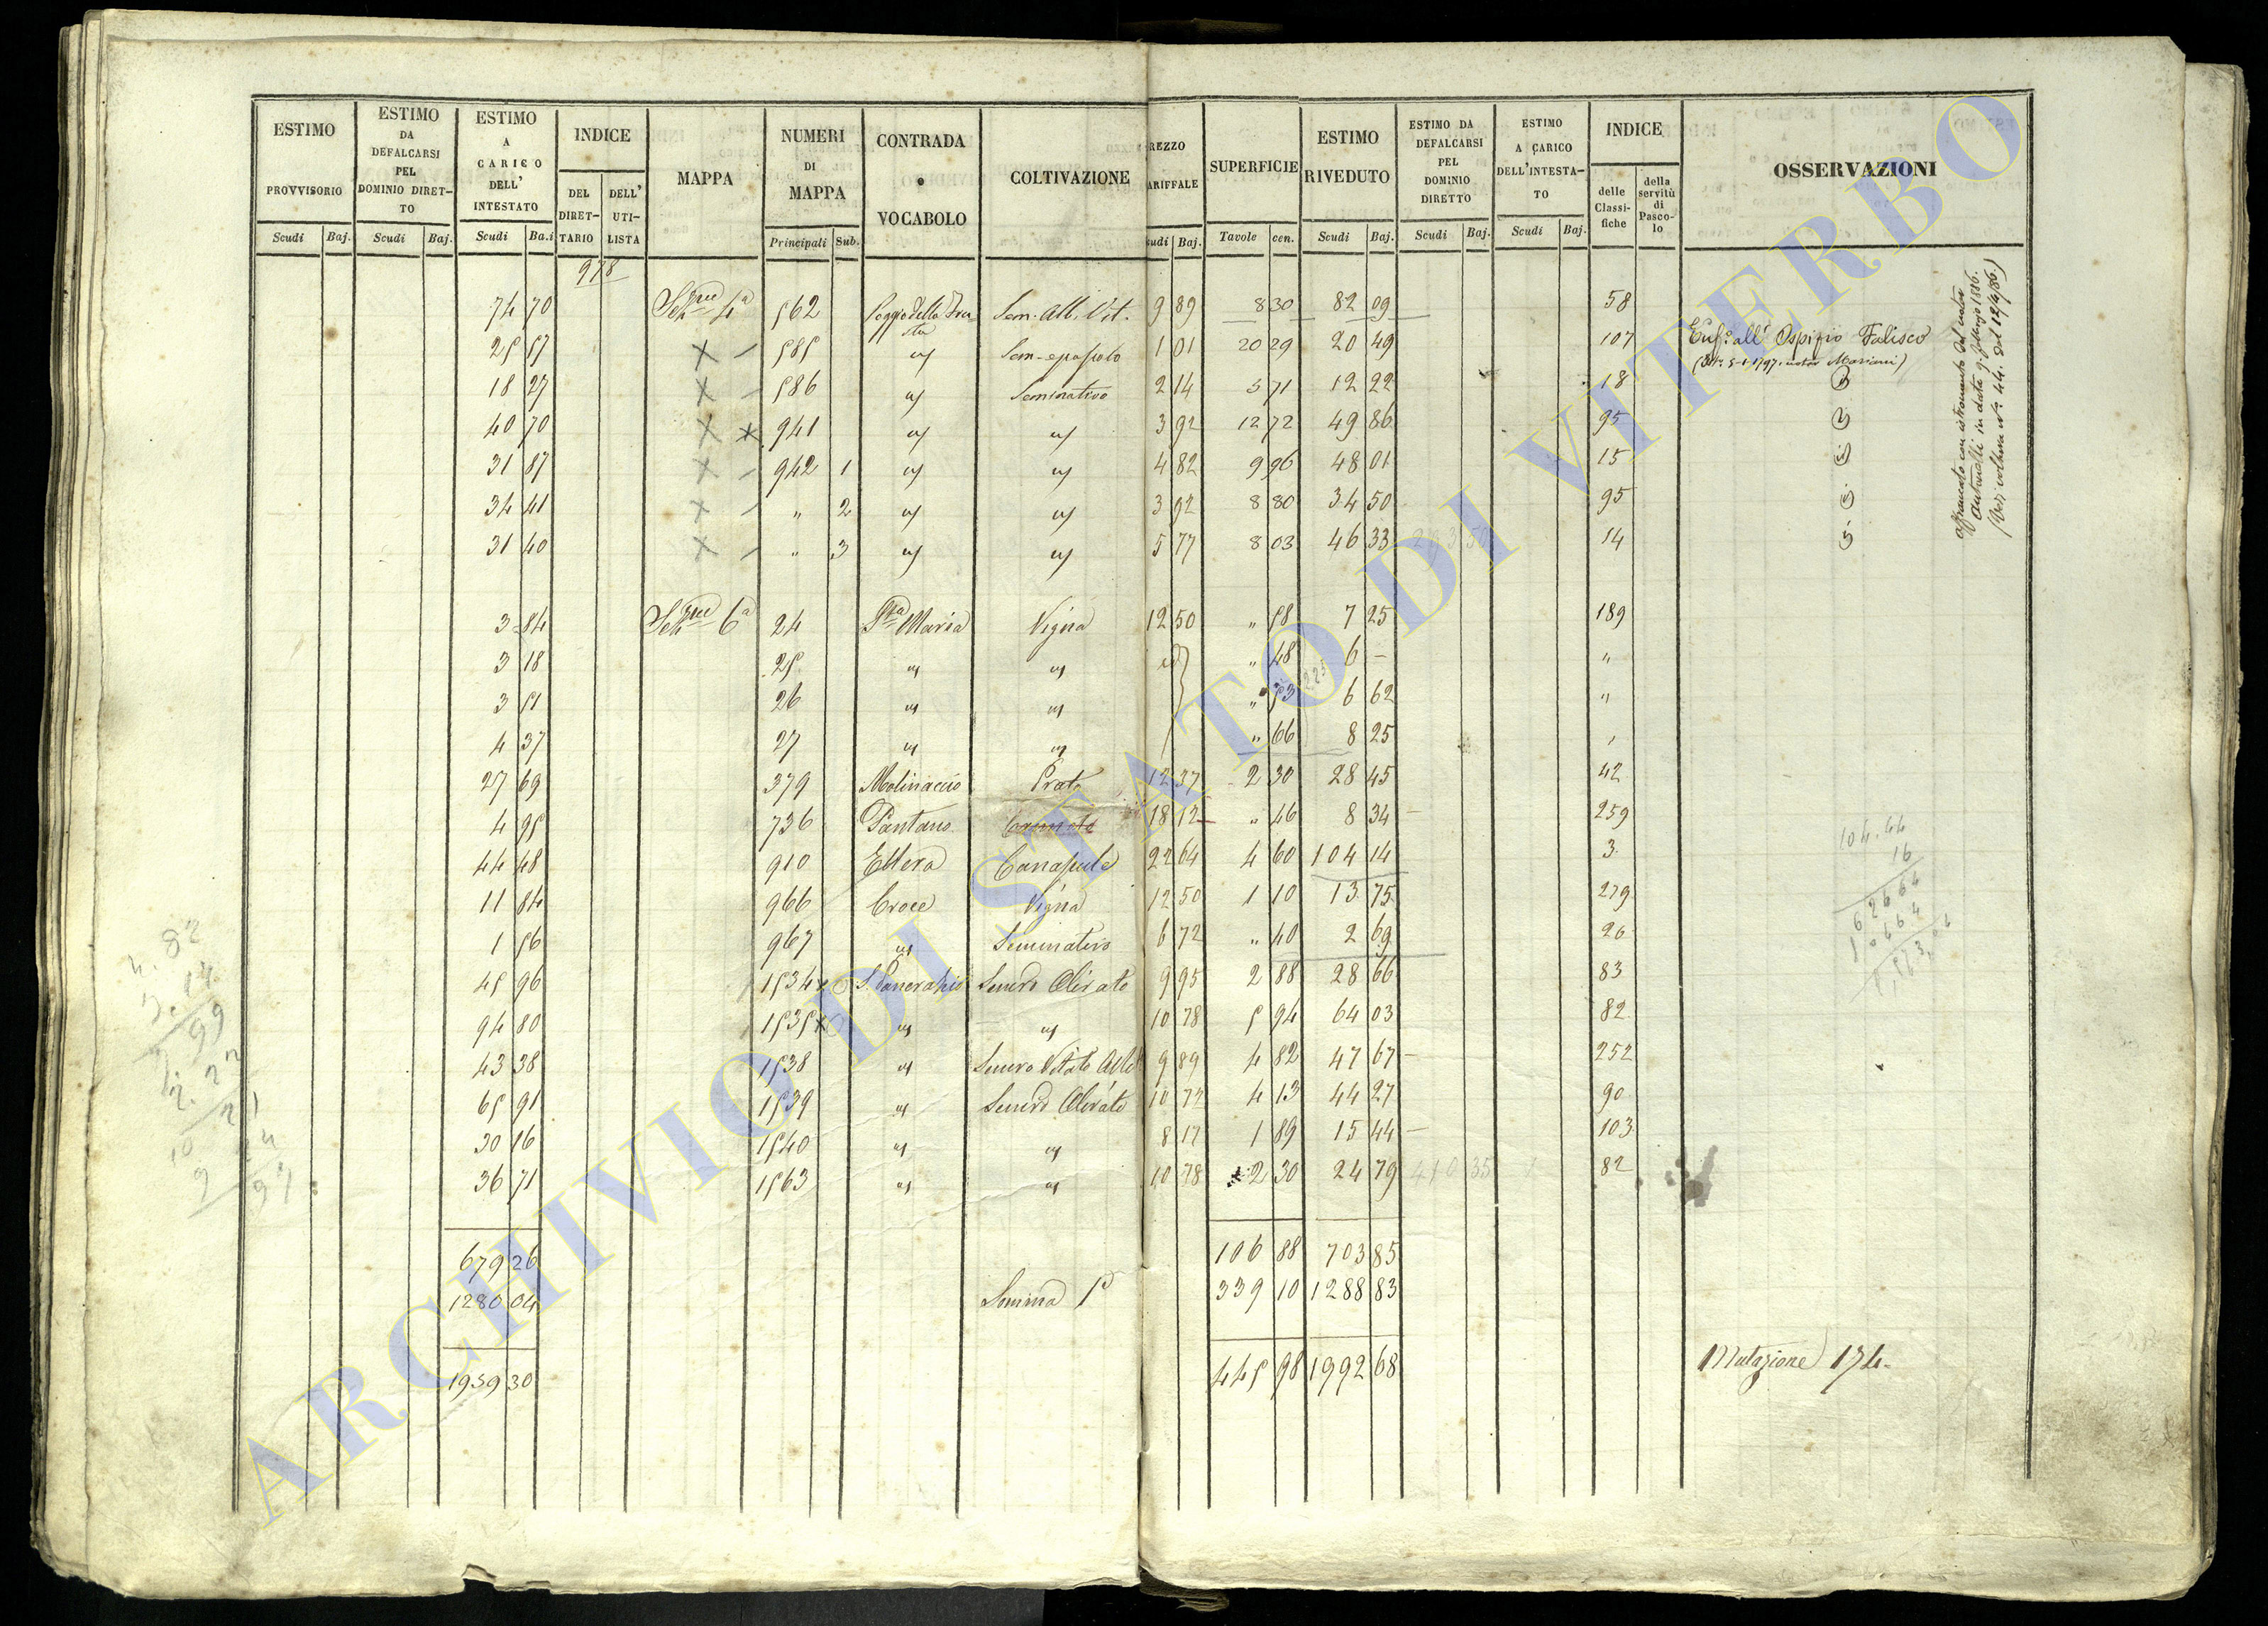 ESTIMO PROVVISORIO Scudi Baj.
ESTIMO DA DEFALCARSI PEL DOMINIO DIRET-TO Scudi Baj.
ESTIMO A CARICO DELL' INTESTATO Scudi Ba.i
INDICE DEL DIRET-TARIO DELL' UTI-LISTA
MAPPA
NUMERI DI MAPPA Principali Sub.
CONTRADA o VOCABOLO
COLTIVAZIONE
REZZO ARIFFALE udi Baj.
SUPERFICIE Tavole cen.
ESTIMO RIVEDUTO Scudi Baj.
ESTIMO DA DEFALCARSI PEL DOMINIO DIRETTO Scudi Baj.
ESTIMO A CARICO DELL'INTESTA-TO Scudi Baj.
INDICE delle Classi-fiche della servitù di Pasco-lo
OSSERVAZIONI
978
74 70 Sezne 4a 562 Poggio della 9 89 8 30 82 09 58
25 57 X 585 " 1 01 20 29 20 49 107 Enf: all' Ospizio Falisco
18 27 X 586 " Seminativo 2 14 5 71 12 22 18
40 70 X 941 " " 3 92 12 72 49 86 95
31 87 X 942 1 " " 4 82 9 96 48 01 15
34 41 X " 2 " " 3 92 8 80 34 50 95
31 40 X " 3 " " 5 77 8 03 46 33 14
3 84 Sezne 6a 24 Sta Maria Vigna 12 50 " 58 7 25 189
3 18 25 " " " 48 6 – "
3 51 26 " " " 53 6 62 "
4 37 27 " " " 66 8 25 "
27 69 379 Molinaccio Prato 12 37 2 30 28 45 42
4 95 736 Pantano 18 12 " 46 8 34 259
44 48 910 Ellera Canapule 22 64 4 60 104 14 3
11 84 966 Croce Vigna 12 50 1 10 13 75 279
1 56 967 " Seminativo 6 72 " 40 2 69 26
45 96 1534 S. Pancrazio Semvo Olivato 9 95 2 88 28 66 83
94 80 1535 " " 10 78 5 94 64 03 82
43 38 1538 " Semvo Vitato Alb 9 89 4 82 47 67 252
65 91 1539 " Semvo Olivato 10 72 4 13 44 27 90
30 16 1540 " " 8 17 1 89 15 44 103
36 71 1563 " " 10 78 2 30 24 79 82
679 26 106 88 703 85
1280 04 Somma 339 10 1288 83
1959 30 445 98 1992 68
Mutazione 174.
ARCHIVIO DI STATO DI VITERBO